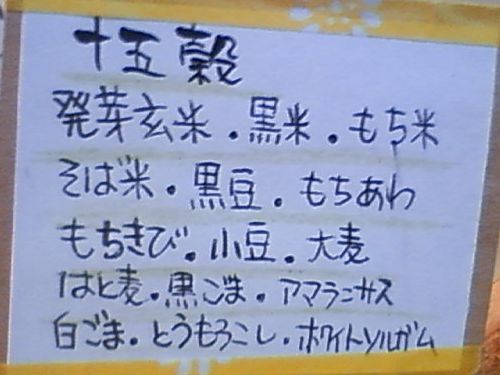 十五穀
発芽玄米・黒米・もち米
そば米・黒豆・もちあわ
もちきび・小豆・大麦
はと麦・黒ごま・アマランサス
白ごま・とうもろこし・ホワイトソルガム